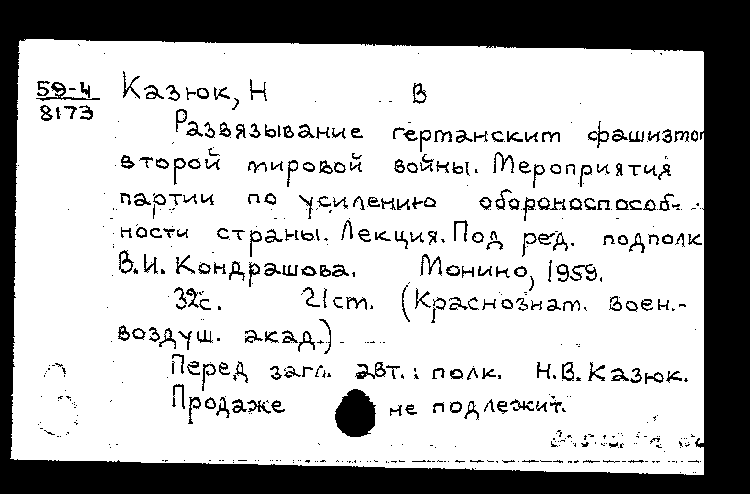 59-4
8173
Казюк, Н В
Развязывание германским фашизмом
второй мировой войны. Мероприятия
партии по усилению обороноспособ-
ности страны. Лекция. Под ред. подполк
В.И. Кондрашова. Монино, 1959.
32с. 21cm. (Краснознам. воен.-
воздуш. акад.)
Перед загл. авт.: полк. Н.В. Казюк.
Продаже не подлежит.